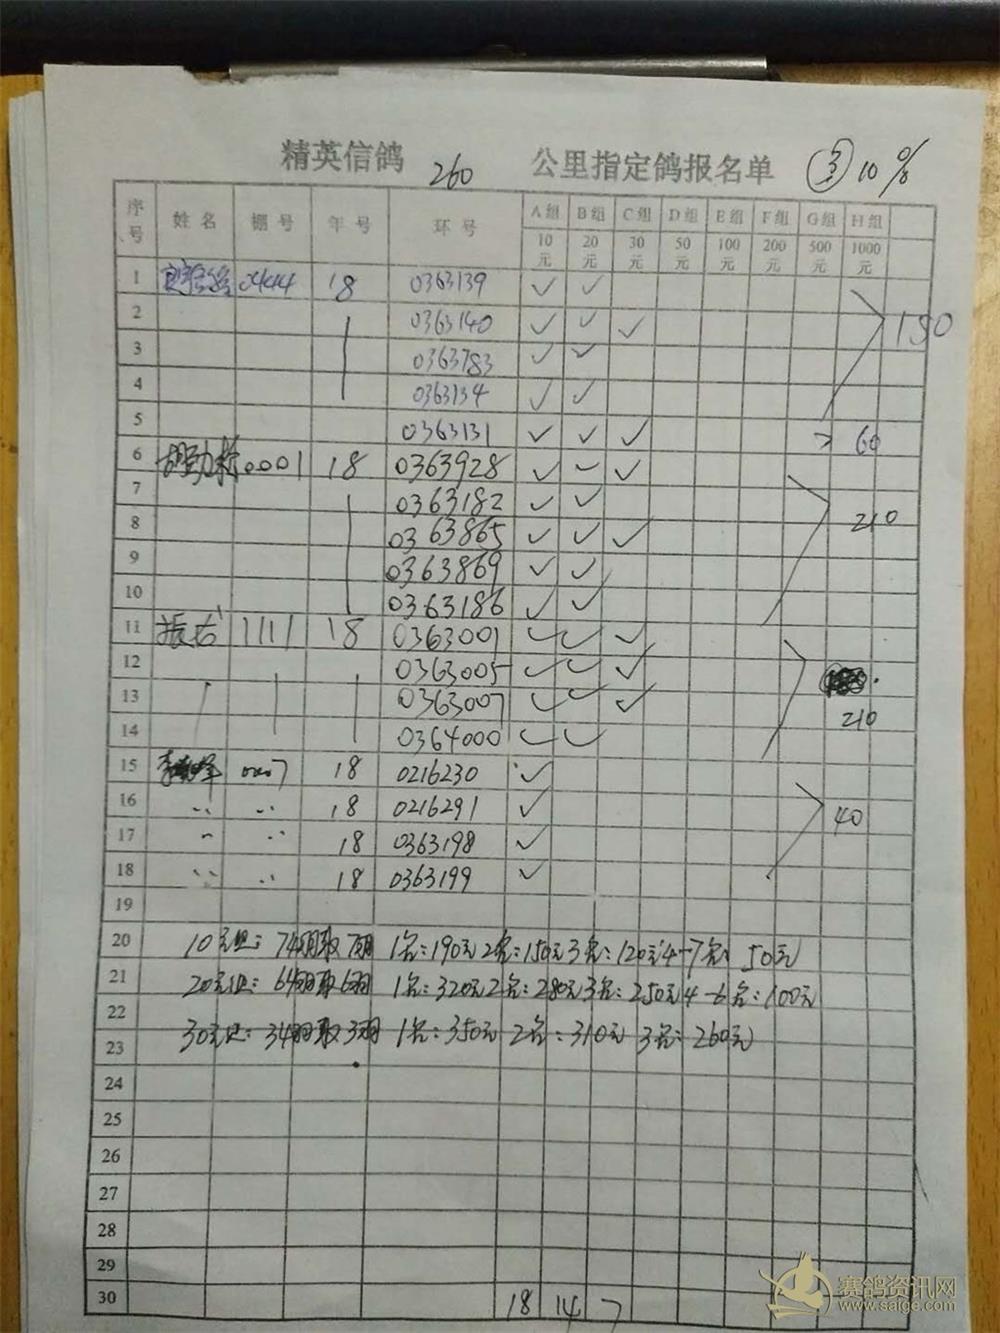 精英信鸽 260 公里指定鸽报名单 ③ 10%
序号 姓名 棚号 年号 环号 A组 B组 C组 D组 E组 F组 G组 H组
10元 20元 30元 50元 100元 200元 500元 1000元
1 18 0363139 ✓ ✓
2 0363140 ✓ ✓ ✓ 150
3 0363783 ✓ ✓
4 0363134 ✓ ✓
5 0363131 ✓ ✓ ✓ 60
6 0001 18 0363928 ✓ ✓ ✓
7 0363182 ✓ ✓
8 0363865 ✓ ✓ ✓ 210
9 0363869 ✓ ✓
10 0363186 ✓ ✓
11 1111 18 0363001 ✓ ✓ ✓
12 0363005 ✓ ✓ ✓
13 0363007 ✓ ✓ ✓ 210
14 0364000 ✓ ✓
15 18 0216230 ✓
16 18 0216291 ✓ 40
17 18 0363198 ✓
18 18 0363199 ✓
19
20 10元组：74羽取7羽 1名：190元 2名：150元 3名：120元 4-7名：50元
21 20元组：64羽取6羽 1名：320元 2名：280元 3名：250元 4-6名：100元
22
23 30元组：34羽取3羽 1名：350元 2名：310元 3名：260元
24
25
26
27
28
29
30 18 14 7
赛鸽资讯网
www.saige.com